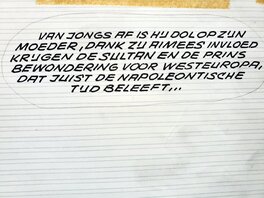 VAN JONGS AF IS HIJ DOL OP ZIJN
MOEDER, DANK ZIJ AIMEES INVLOED
KRIJGEN DE SULTAN EN DE PRINS
BEWONDERING VOOR WESTEUROPA,
DAT JUIST DE NAPOLEONTISCHE
TIJD BELEEFT...